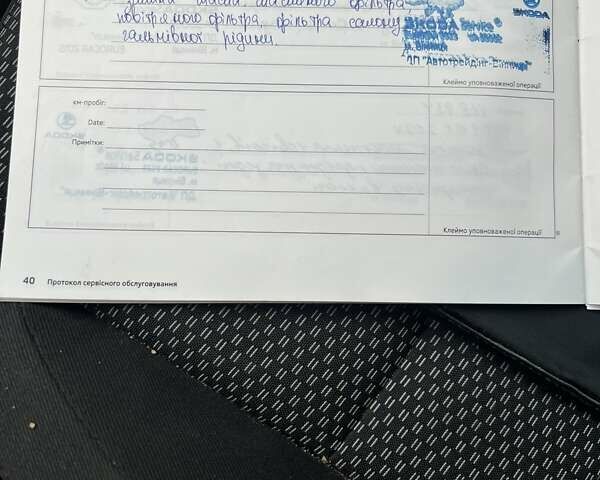 заміна масла масляного фільтра,
повітряного фільтра, фільтра салону
гальмівної рідини.
ŠKODA Service
ŠKODA
м. Вінниця
ДП "Автотрейдінг-Вінниця"
Клеймо уповноваженої операції
км-пробіг:
Date:
Примітки:
Клеймо уповноваженої операції
40 Протокол сервісного обслуговування